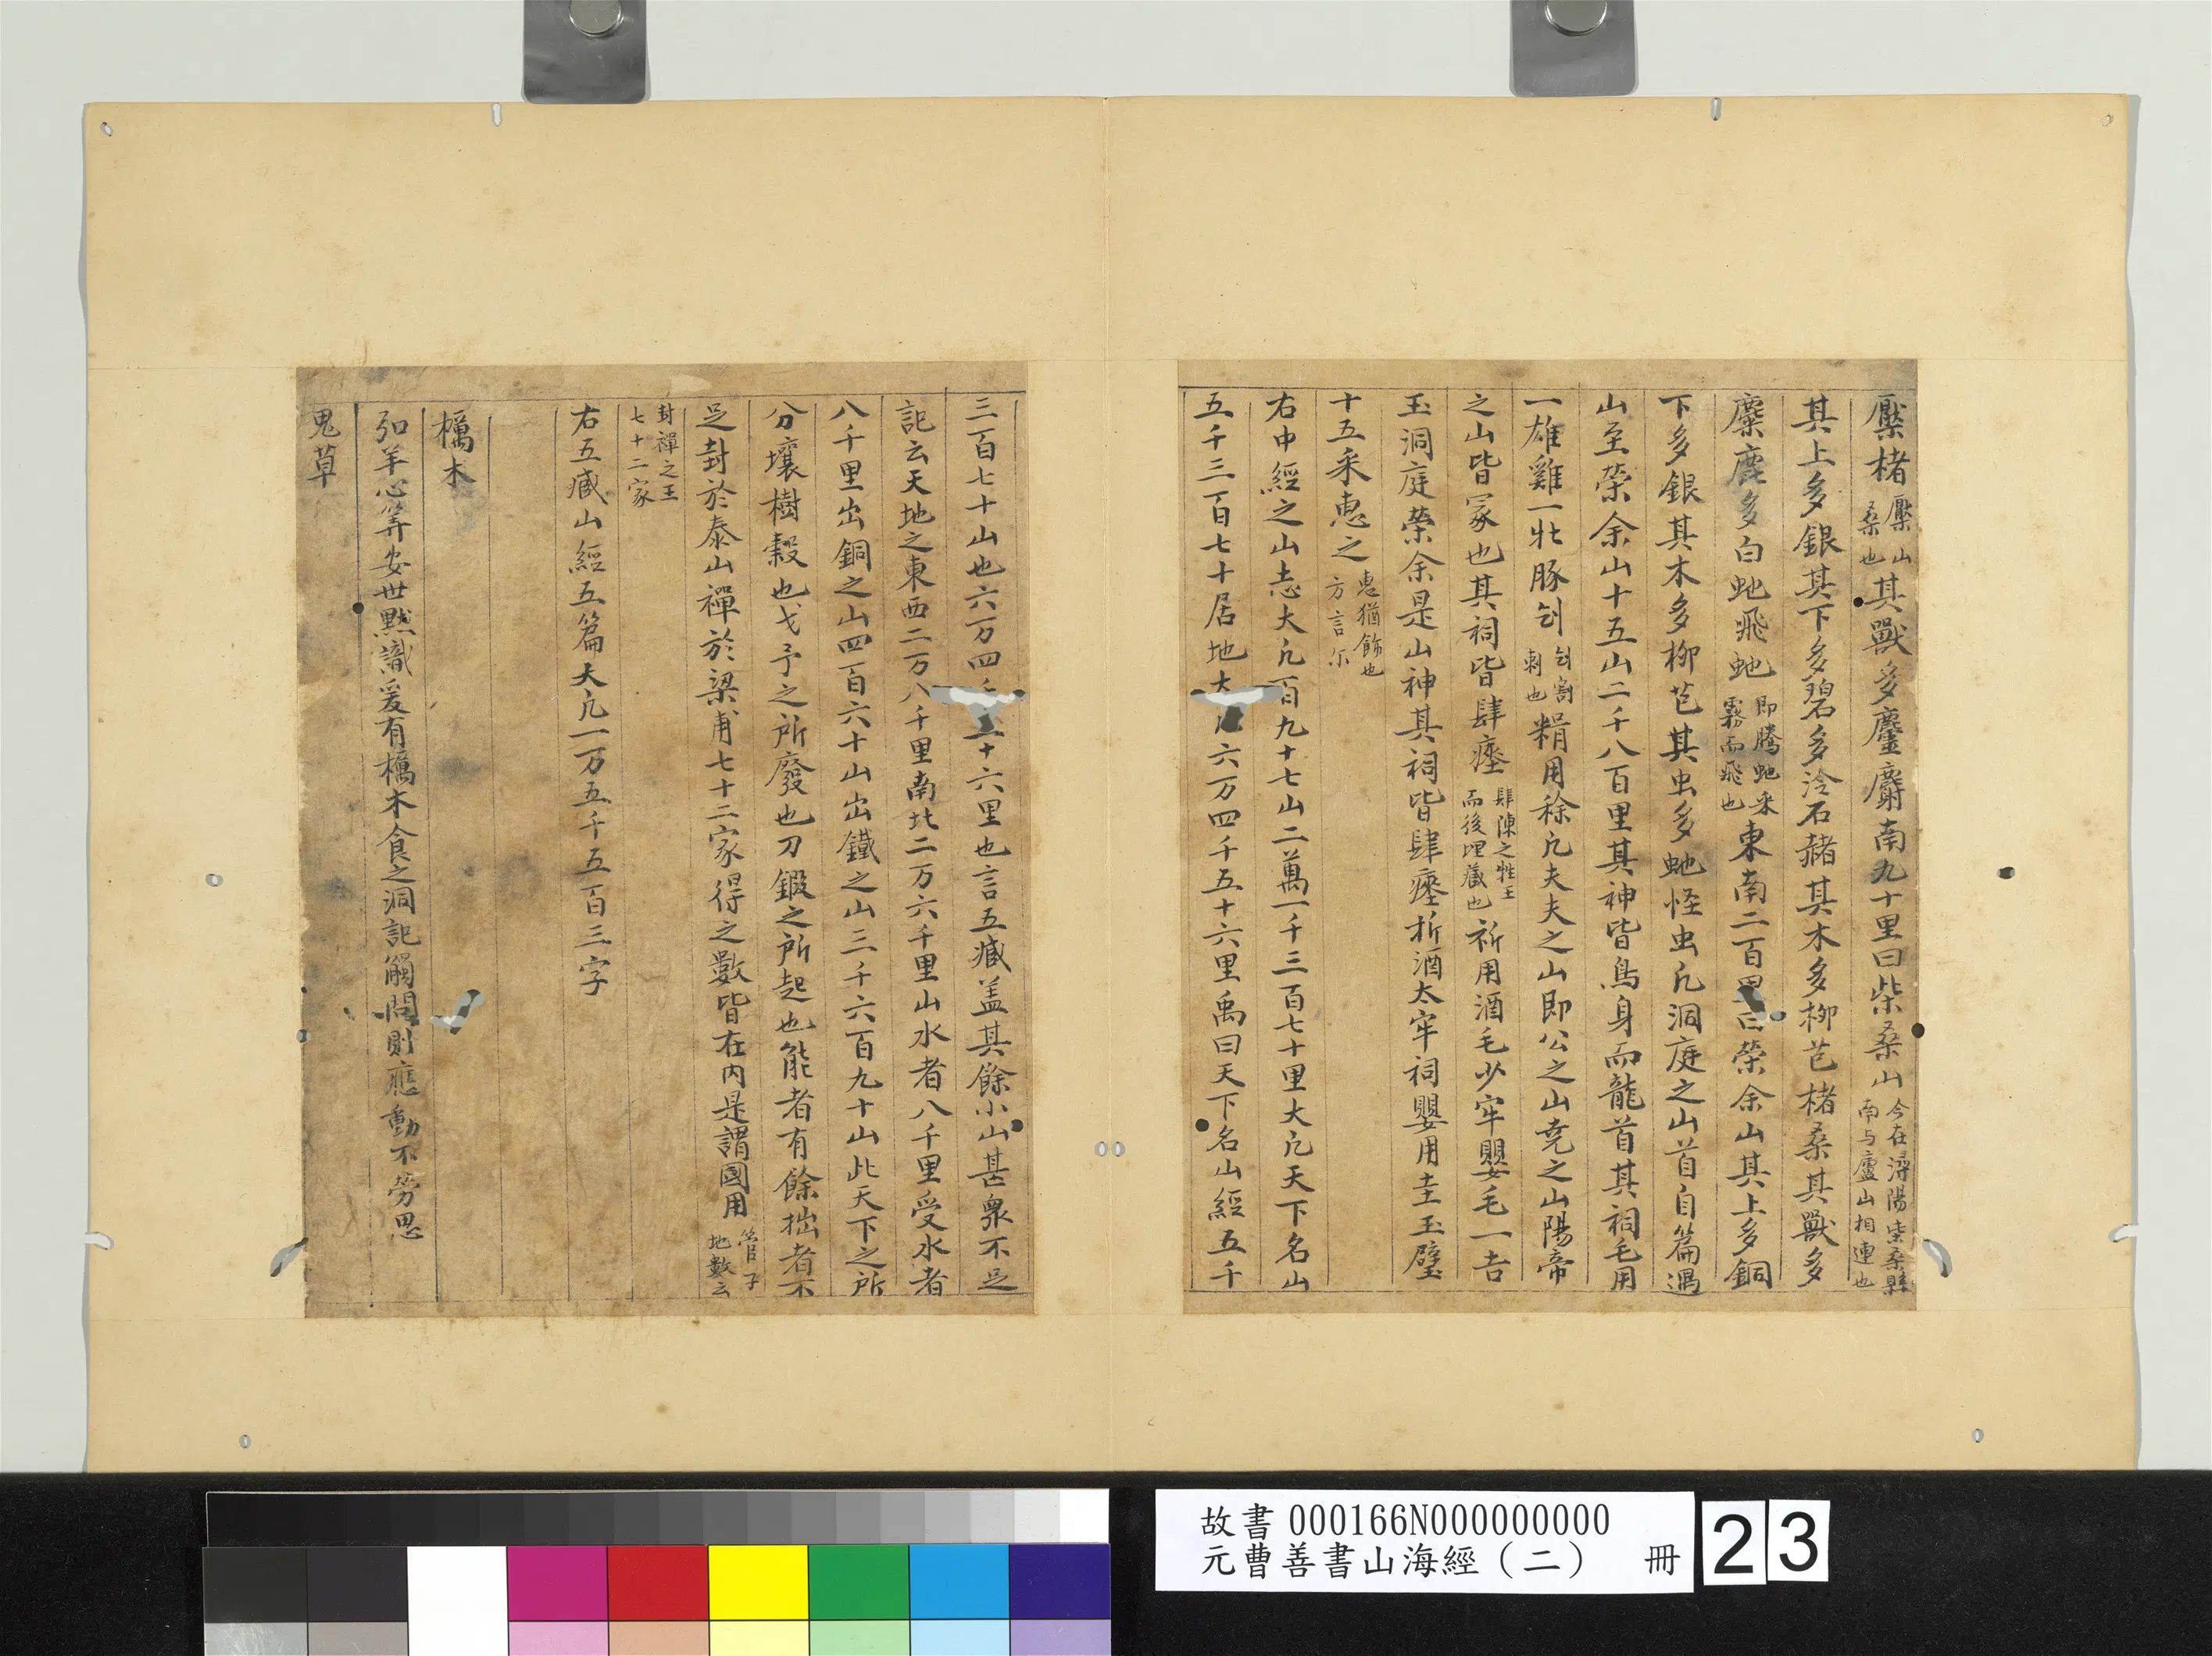 檿楮檿山桑也其獸多麈麢南九十里曰柴桑山今在潯陽柴桑縣南与廬山相連也
其上多銀其下多碧多泠石赭其木多柳芑楮桑其獸多
麋鹿多白虵飛虵即騰虵乘霧而飛也東南二百里曰榮余山其上多銅
下多銀其木多柳芑其虫多虵怪虫凡洞庭之山首自篇遇
山至榮余山十五山二千八百里其神皆鳥身而龍首其祠毛用
一雄雞一牡豚刉刉割刺也糈用稌凡夫夫之山即公之山尭之山陽帝
之山皆冢也其祠皆肆瘞肆陳之牲玉而後埋藏也祈用酒毛少牢嬰毛一吉
玉洞庭榮余是山神其祠皆肆瘞祈酒太牢祠嬰用圭玉璧
十五采惠之惠猶飾也方言尓
右中經之山志大凡百九十七山二萬一千三百七十里大凡天下名山
五千三百七十居地大六万四千五十六里禹曰天下名山經五千
三百七十山也六万四千五十六里也言五臧盖其餘小山甚衆不足
記云天地之東西二万八千里南北二万六千里山水者八千里受水者
八千里出銅之山四百六十山出鐵之山三千六百九十山此天下之所
分壤樹穀也戈予之所廢也刀鍛之所起也能者有餘拙者不
足封於泰山禪於梁甫七十二家得之數皆在内是謂國用管子地數云
封禪之王七十二家
右五臧山經五篇大凡一万五千五百三字
櫔木
弘羊心筭安世黙識爰有櫔木食之洞記觸問則應動不勞思
鬼草
故書 000166N000000000
元曹善書山海經（二） 冊
23